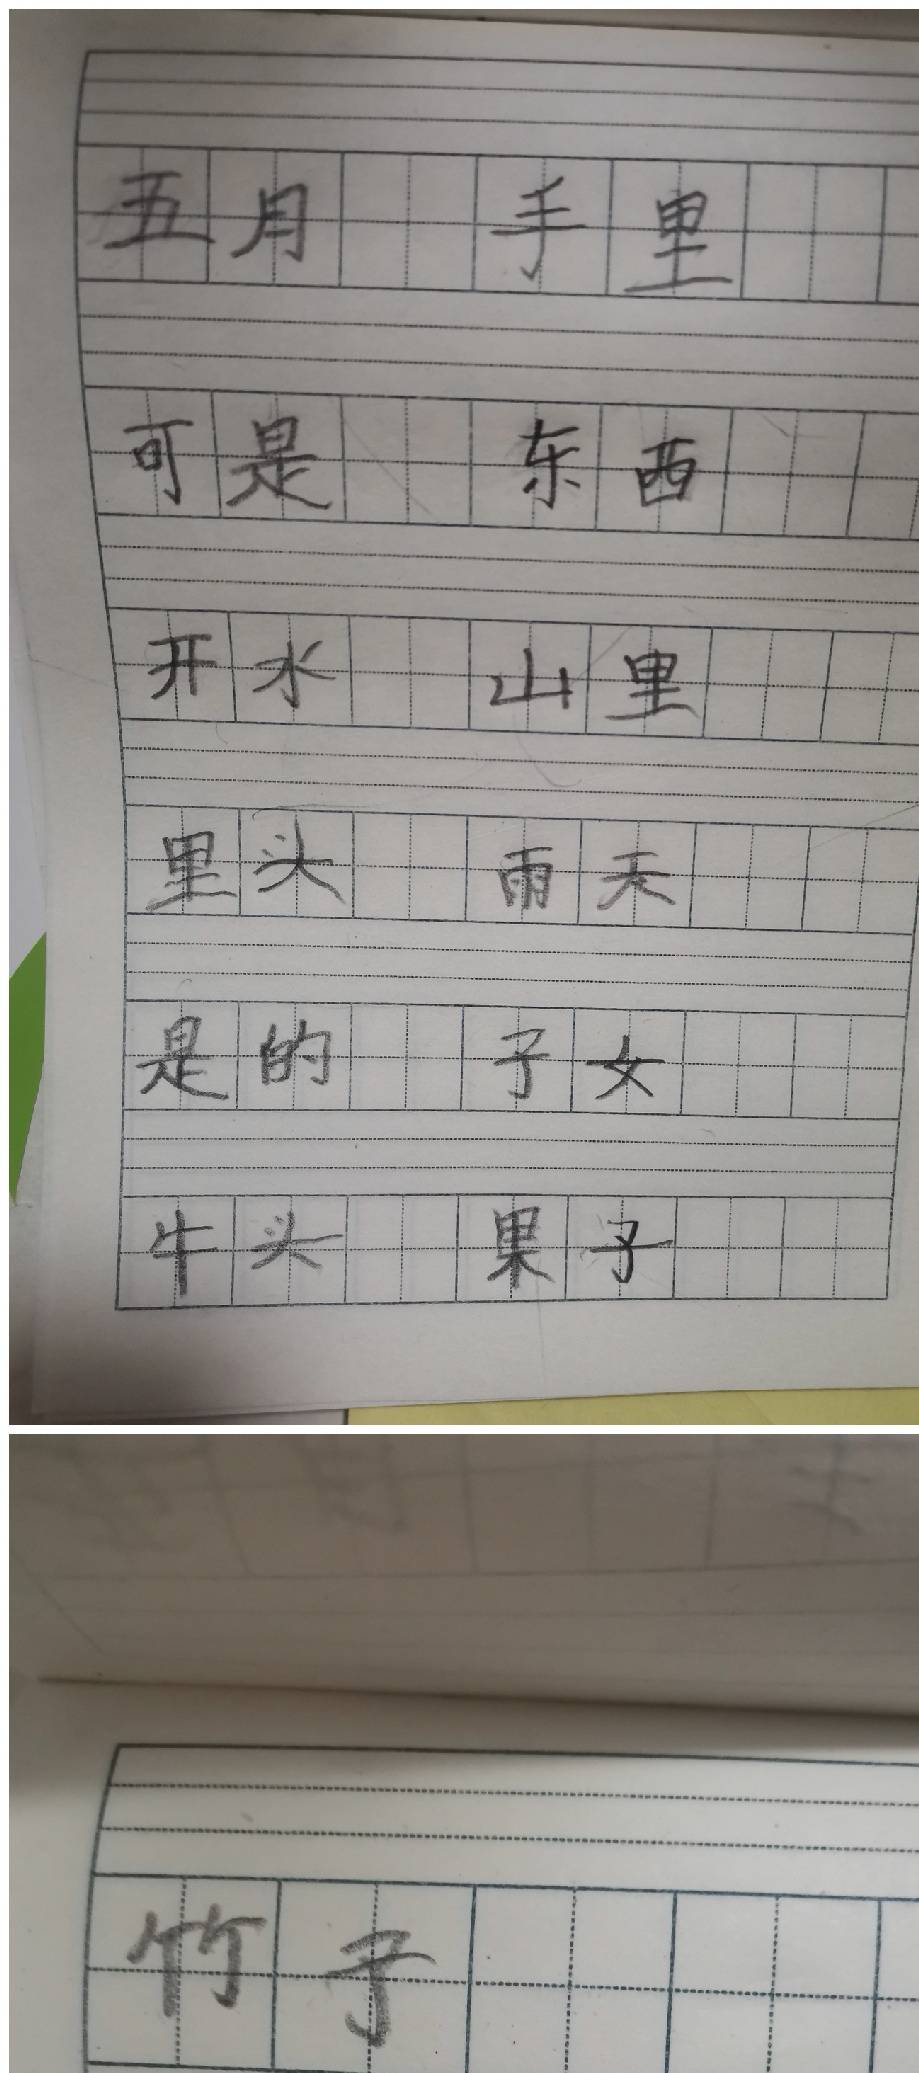 五月 手里
可是 东西
开水 山里
里头 雨天
是的 子女
牛头 果子
竹子